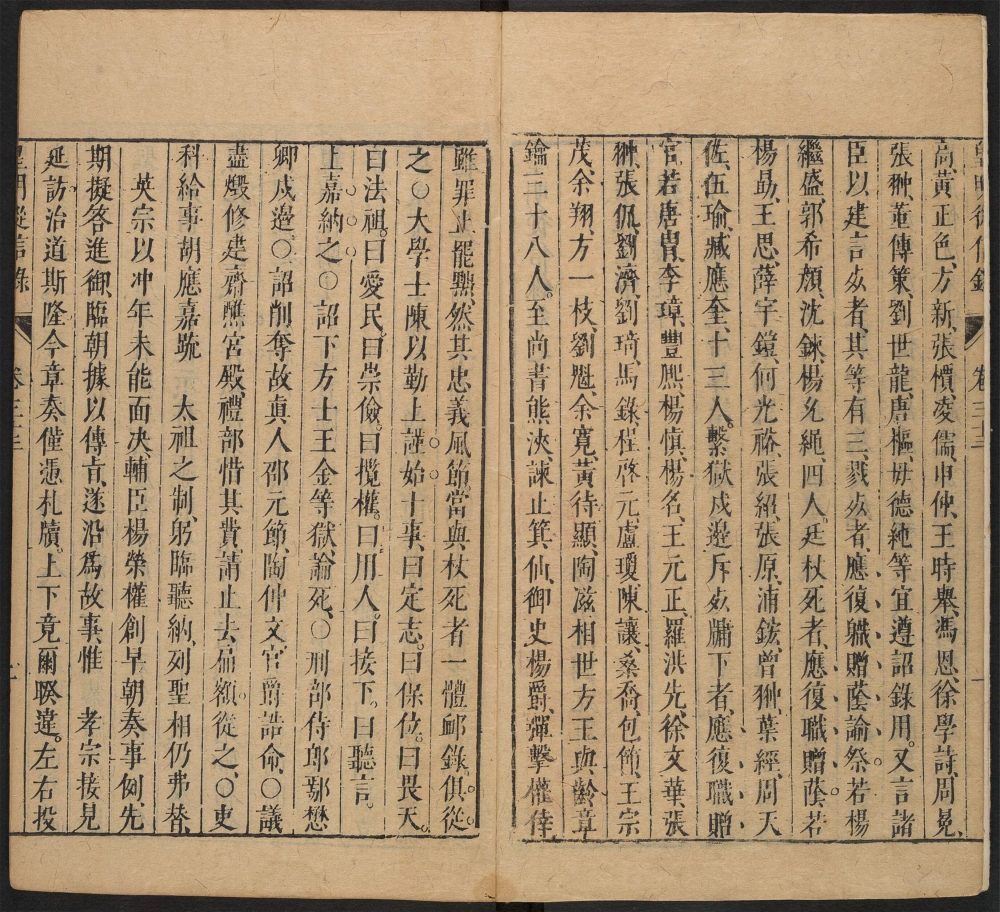 皇明從信錄 卷三十三 一
高黃正色、方新、張檟、凌儒、申仲、王時舉、馮恩、徐學詩、周冕、
張翀、董傳策、劉世龍、唐樞、毋德純等宜遵詔錄用。又言諸
臣以建言死者、其等有三、戮死者、應復職贈蔭諭祭。若楊
繼盛、郭希顏、沈鍊、楊允繩、四人。廷杖死者、應復職贈蔭。若
楊勗、王思、薛宇鎧、何光裕、張紹、張原、浦鋐、曾翀、葉經、周天
佐、伍瑜、臧應奎、十三人。繫獄戍邊斥死牖下者、應復職贈
官若唐胄、李璋、豐熙、楊慎、楊名、王元正、羅洪先、徐文華、張
翀、張侃、劉濟、劉琦、馬錄、程啓元、盧瓊、陳讓、桑喬、包節、王宗
茂、余翔、方一枝、劉魁、余寬、黃待顯、陶滋、相世方、王與齡、章
鑰三十八人。至尚書熊浹、諫止箕仙、御史楊爵、彈擊權倖、
雖罪止罷黜、然其忠義風節當與杖死者一體卹錄。俱從
之。〇大學士陳以勤上謹始十事、曰定志。曰保位。曰畏天。
曰法祖。曰愛民。曰崇儉。曰攬權。曰用人。曰接下。曰聽言。
上嘉納之。〇詔下方士王金等獄、論死。〇刑部侍郎鄢懋
卿戍邊。〇詔削奪故眞人邵元節、陶仲文官爵誥命。〇議
盡燬修建齋醮宮殿、禮部惜其費、請止去扁額、從之。〇吏
科給事胡應嘉䟽 太祖之制、躬臨聽納、列聖相仍弗替、
英宗以冲年未能面决、輔臣楊榮權創早朝奏事例、先
期擬答進御、臨朝據以傳㫖、遂沿爲故事、惟 孝宗接見
延訪、治道斯隆、今章奏僅憑札牘。上下竟爾暌違。左右投
皇明從信錄 卷三十三 一